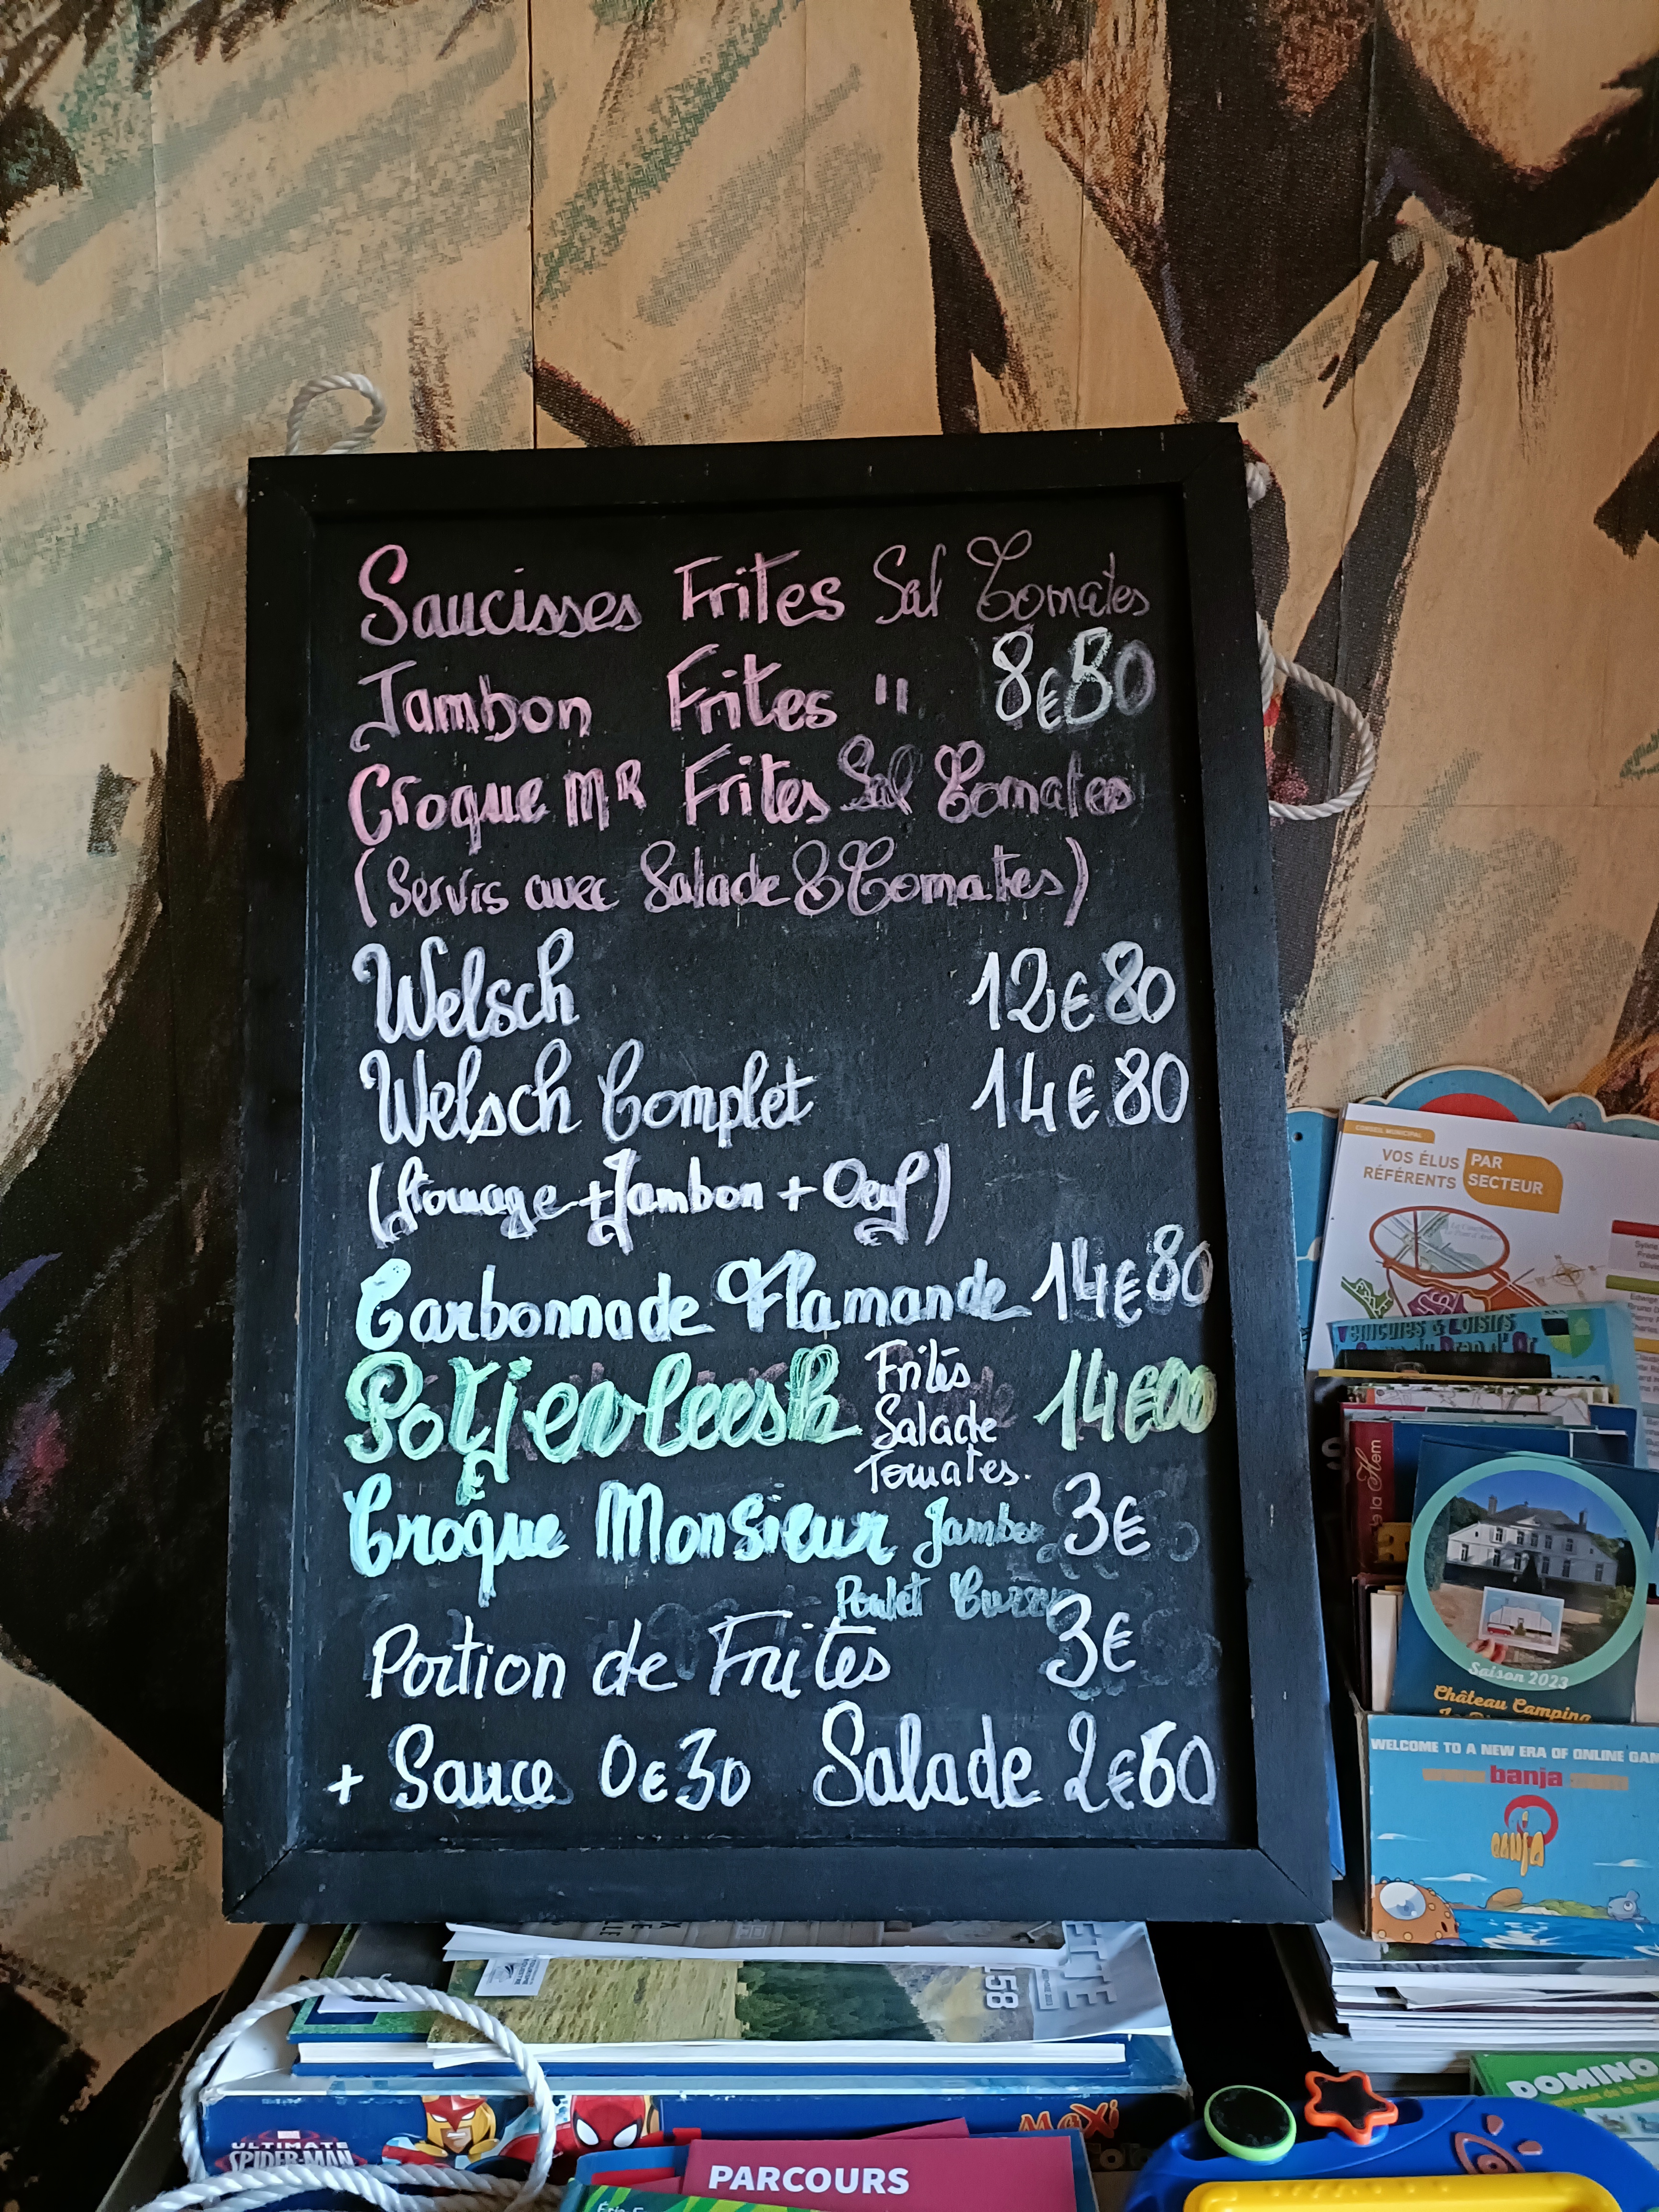 Saucisses Frites Sal Tomates
Jambon Frites " 8€50
Croque Mr Frites Sal Tomates
(Servis avec Salade & Tomates)
Welsch 12€80
Welsch Complet 14€80
(fromage + Jambon + Oeuf)
Carbonnade Flamande 14€80
Potjevleesh Frites Salade Tomates. 14€00
Croque Monsieur Jambon 3€
Poulet Curry
Portion de Frites 3€
+ Sauce 0€30 Salade 2€60
CONSEIL MUNICIPAL
VOS ÉLUS RÉFÉRENTS PAR SECTEUR
de la Hem
Saison 2023
Château Camping
WELCOME TO A NEW ERA OF ONLINE GAM
banja
banja
158
ULTIMATE SPIDER-MAN
MAXi
PARCOURS
DOMINO